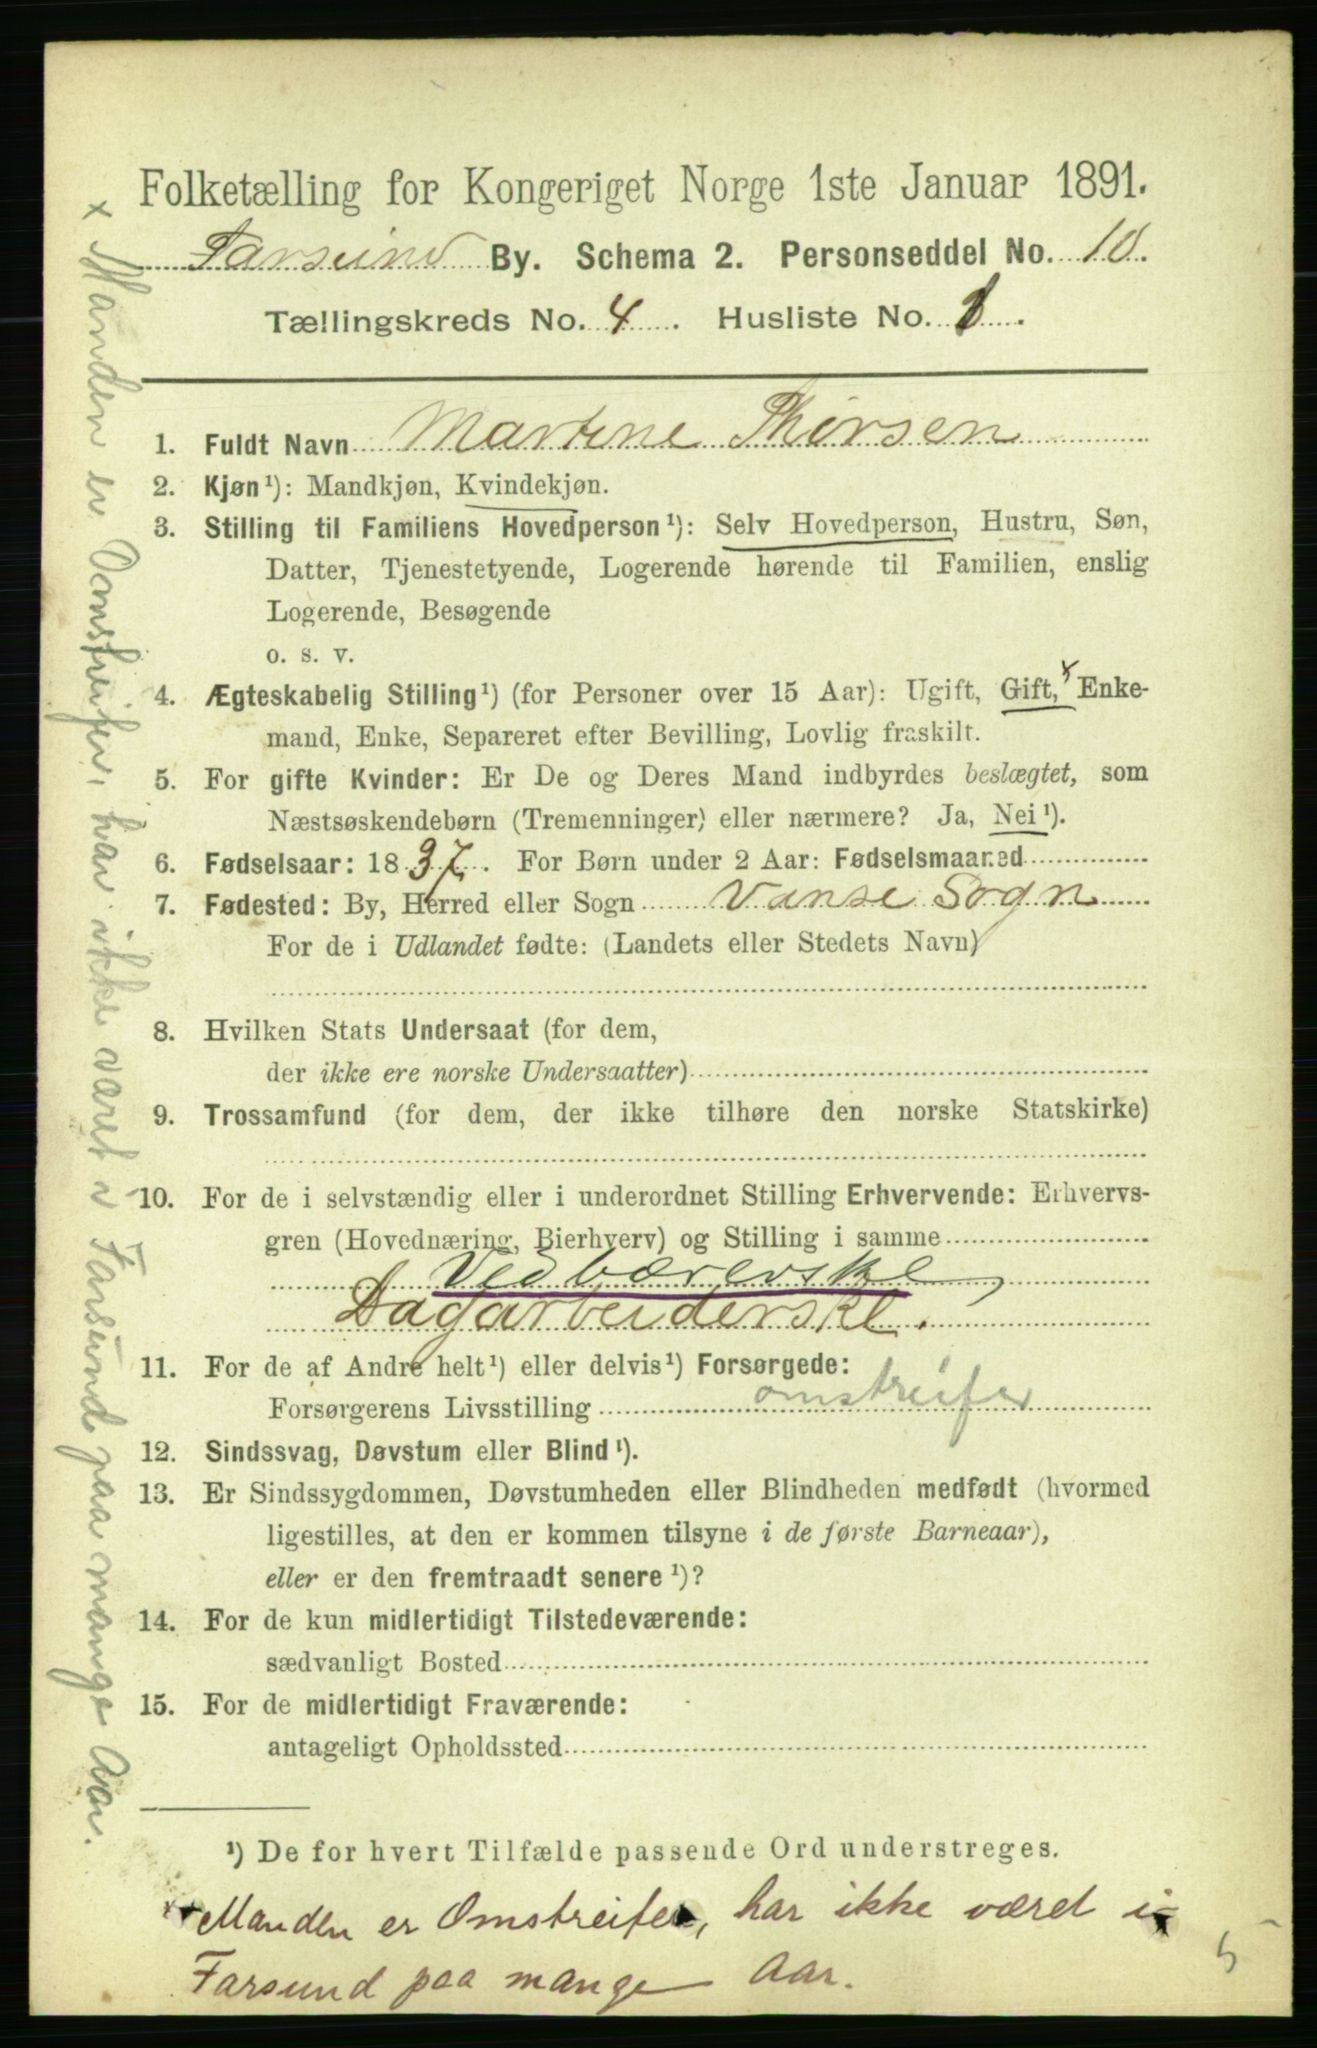 Folketælling for Kongeriget Norge 1ste Januar 1891.
Farsund By. Schema 2. Personseddel No. 10.
Tællingskreds No. 4. Husliste No. 1.
1. Fuldt Navn Martine Thorsen
2. Kjøn¹): Mandkjøn, Kvindekjøn.
3. Stilling til Familiens Hovedperson¹): Selv Hovedperson, Hustru, Søn,
Datter, Tjenestetyende, Logerende hørende til Familien, enslig
Logerende, Besøgende
o. s. v.
4. Ægteskabelig Stilling¹) (for Personer over 15 Aar): Ugift, Gift,ˣ Enke-
mand, Enke, Separeret efter Bevilling, Lovlig fraskilt.
5. For gifte Kvinder: Er De og Deres Mand indbyrdes beslægtet, som
Næstsøskendebørn (Tremenninger) eller nærmere? Ja, Nei¹).
6. Fødselsaar: 1837. For Børn under 2 Aar: Fødselsmaaned
7. Fødested: By, Herred eller Sogn Vanse Sogn
For de i Udlandet fødte: (Landets eller Stedets Navn)
8. Hvilken Stats Undersaat (for dem,
der ikke ere norske Undersaatter)
9. Trossamfund (for dem, der ikke tilhøre den norske Statskirke)
10. For de i selvstændig eller i underordnet Stilling Erhvervende: Erhvervs-
gren (Hovednæring, Bierhverv) og Stilling i samme
Vedbærerske,
Dagarbeiderske.
11. For de af Andre helt¹) eller delvis¹) Forsørgede:
Forsørgerens Livsstilling omstreifer
12. Sindssvag, Døvstum eller Blind¹).
13. Er Sindssygdommen, Døvstumheden eller Blindheden medfødt (hvormed
ligestilles, at den er kommen tilsyne i de første Barneaar),
eller er den fremtraadt senere¹)?
14. For de kun midlertidigt Tilstedeværende:
sædvanligt Bosted
15. For de midlertidigt Fraværende:
antageligt Opholdssted
¹) De for hvert Tilfælde passende Ord understreges.
x Manden er Omstreifer, har ikke været i
Farsund paa mange Aar.
5
x Manden er Omstreifer, har ikke været i Farsund paa mange Aar.